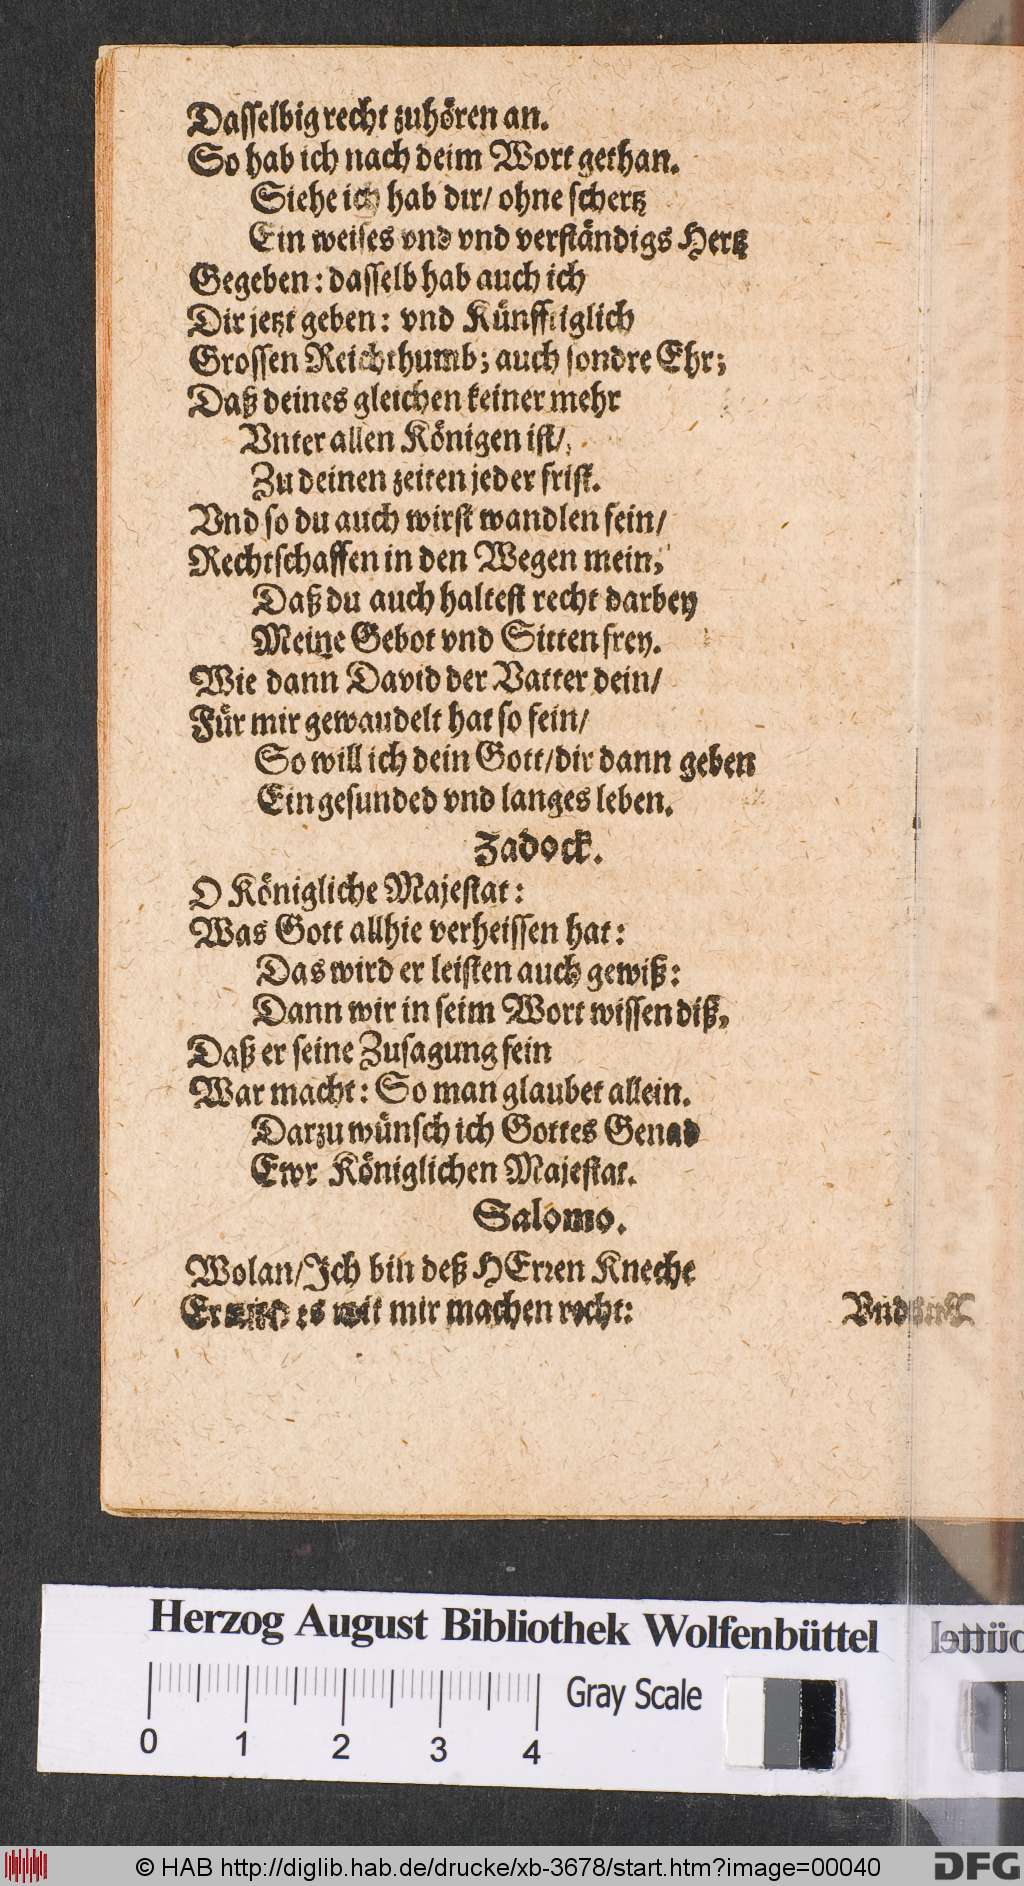 Dasselbig recht zuhören an.
So hab ich nach deim Wort gethan.
Siehe ich hab dir/ ohne schertz
Ein weises vnd vnd verständigs Hertz
Gegeben: dasselb hab auch ich
Dir jetzt geben: vnd Künfftiglich
Grossen Reichthumb; auch sondre Ehr;
Daß deines gleichen keiner mehr
Vnter allen Königen ist/
Zu deinen zeiten jeder frist.
Vnd so du auch wirst wandlen fein/
Rechtschaffen in den Wegen mein;
Daß du auch haltest recht darbey
Meine Gebot vnd Sitten frey.
Wie dann David der Vatter dein/
Für mir gewandelt hat so fein/
So will ich dein Gott/ dir dann geben
Ein gesunded vnd langes leben.
Zadock.
O Königliche Majestat:
Was Gott allhie verheissen hat:
Das wird er leisten auch gewiß:
Dann wir in seim Wort wissen diß,
Daß er seine Zusagung fein
War macht: So man glaubet allein.
Darzu wünsch ich Gottes Genad
Ewr Königlichen Majestat.
Salomo.
Wolan/ Ich bin deß HErren Knecht
Er es mit mir machen recht:
Vnd
Herzog August Bibliothek Wolfenbüttel
0 1 2 3 4 Gray Scale
© HAB http://diglib.hab.de/drucke/xb-3678/start.htm?image=00040
DFG